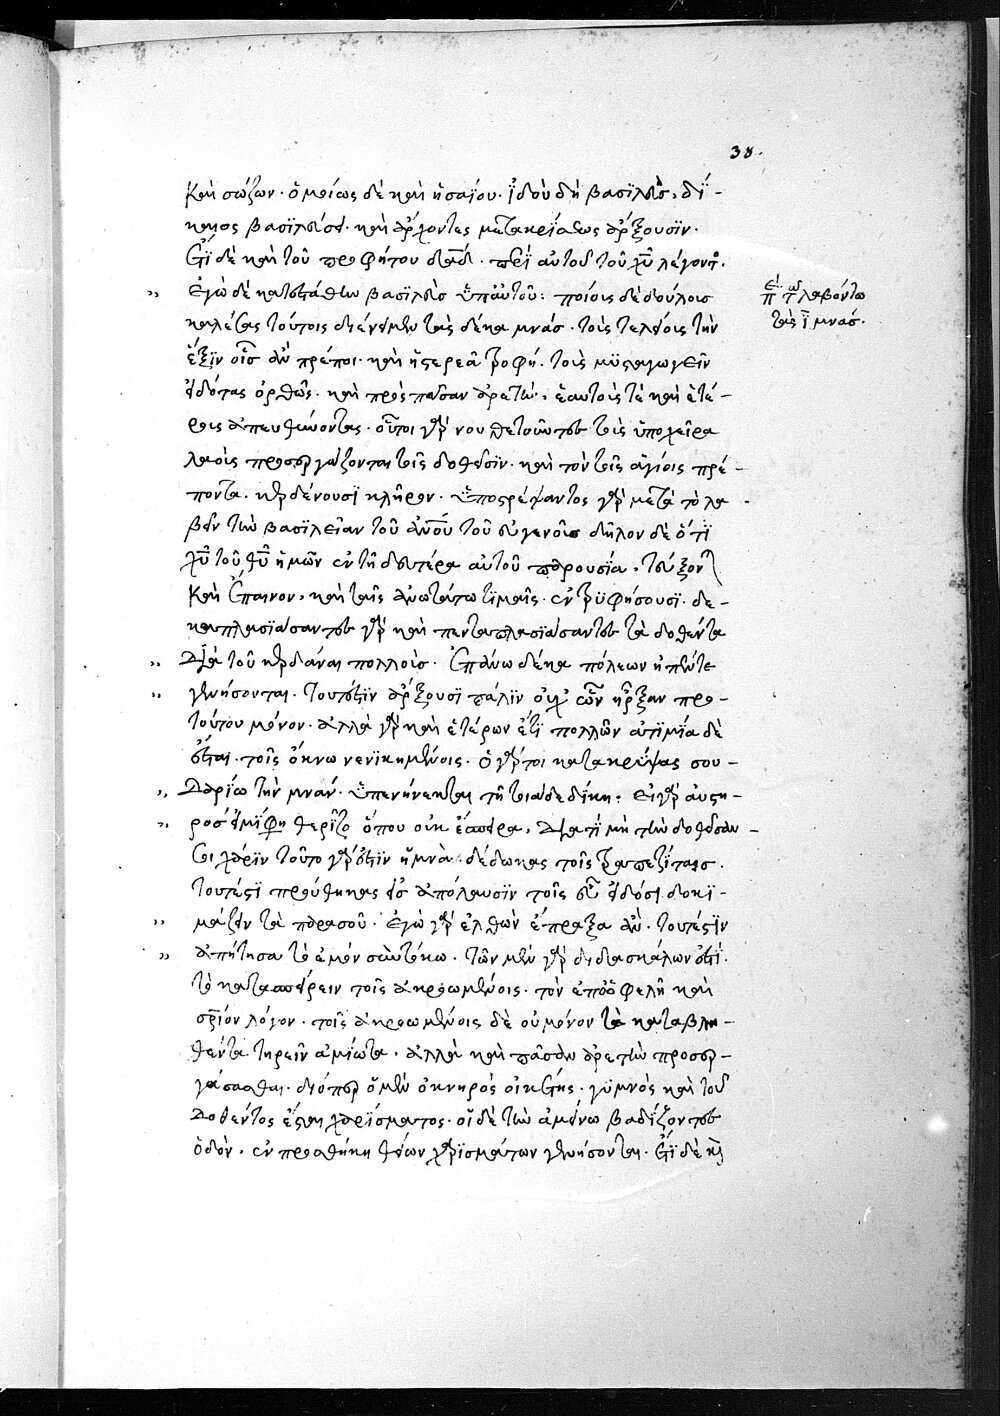 38.
καὶ σώζων· ὁμοίως δὲ καὶ ἡσαΐου· ἰδοὺ δὴ βασιλεὺς δί-
καιος βασιλεύσει· καὶ ἄρχοντες μετα κρίσεως ἄρξουσιν·
ἔτι δὲ καὶ τοῦ προφήτου δαδ· περὶ αὐτοῦ τοῦ χυ λέγοντος·
ἐγὼ δὲ κατεστάθην βασιλεὺς ὑπ αὐτοῦ: ποίοις δὲ δούλοις
περὶ τῶν λαβόντων
τὰς ι μνάς.
καλέσας τούτοις διένειμεν τὰς δέκα μνάς· τοῖς τελείοις τὴν
ἕξιν οἷς ἂν πρέποι καὶ ἡ στερεὰ τροφή· τοῖς μυσταγωγεῖν
εἰδότας ὀρθῶς· καὶ πρὸς πᾶσαν ἀρετὴν, ἑαυτούς τὲ καὶ ἑτέ-
ρους ἀπευθύνοντας· οὗτοι γὰρ νουθετοῦντες τοὺς ὑποχείρα
λαοὺς προσεργάζονται τοῖς δοθεῖσιν· καὶ τὸν τοῖς ἁγίοις πρέ-
ποντα κερδένουσι κλῆρον· ὑποστρέψαντος γὰρ μετὰ τὸ λα-
βεῖν τὴν βασιλείαν τοῦ ἀνου τοῦ εὐγενοῦς δῆλον δὲ ὅτι
χυ τοῦ θυ ἡμῶν ἐν τῇ δευτέρα αὐτοῦ παρουσία, τεύξονται
καὶ ἔπαινον, καὶ ταῖς ἀνωτάτω τιμαῖς ἐντρυφήσουσι· δε-
καπλασιάσαντες γὰρ καὶ πενταπλασιάσαντες τὰ δοθέντα
διὰ τοῦ κερδάναι πολλοὺς· ἐπάνω δέκα πόλεων ἢ πέντε
γενήσονται· τουτέστιν ἄρξουσι πάλιν οὐχ ὧν ἦρξαν προ-
τούτου μόνον· ἀλλὰ γὰρ καὶ ἑτέρων ἔτι πολλῶν ἀτιμία δὲ
ἔσται τοῖς ὄκνω νενικημένοις· ὁ γάρ τοι κατακρύψας σου-
δαρίω τὴν μνάν· ὑπενήνεκται τῇ τοιαδε δίκη: εἰ γὰρ αὐστη-
ρός εἰμί φη θερίζω ὅπου οὐκ ἔσπειρα, διατί μὴ τὴν δοθεῖσάν
σοι χάριν τοῦτο γάρ ἐστιν ἡ μνὰ· δέδωκας τοῖς τραπεζίταις·
τουτέστι προύθηκας εἰς ἀπόλαυσιν τοῖς εὖ εἰδόσι δοκι-
μάζειν τὰ παρασοῦ· ἐγὼ γὰρ ἐλθὼν ἔπραξα ἂν· τουτέστιν
ἀπήτησα τὸ ἐμόν σὺν τόκω· τῶν μὲν γὰρ διδασκάλων ἐστί·
τὸ κατασπείρειν τοῖς ἀκροωμένοις· τὸν ἐπωφελῆ καὶ
σριον λόγον· τοῖς ἀκροωμένοις δὲ οὐ μόνον τὰ καταβλη-
θέντα τηρεῖν ἀμίωτα, ἀλλὰ καὶ πᾶσαν ἀρετὴν προσερ-
γάσασθαι· διόπερ ὁ μὲν ὀκνηρὸς οἰκέτης, γυμνὸς καὶ τοῦ
δοθέντος ἔσται χαρίσματος· οἱ δὲ τὴν ἀμείνω βαδίζοντες
ὁδὸν, ἐν προσθήκη θείων χαρισμάτων γενήσονται· ἔτι δὲ κὶ